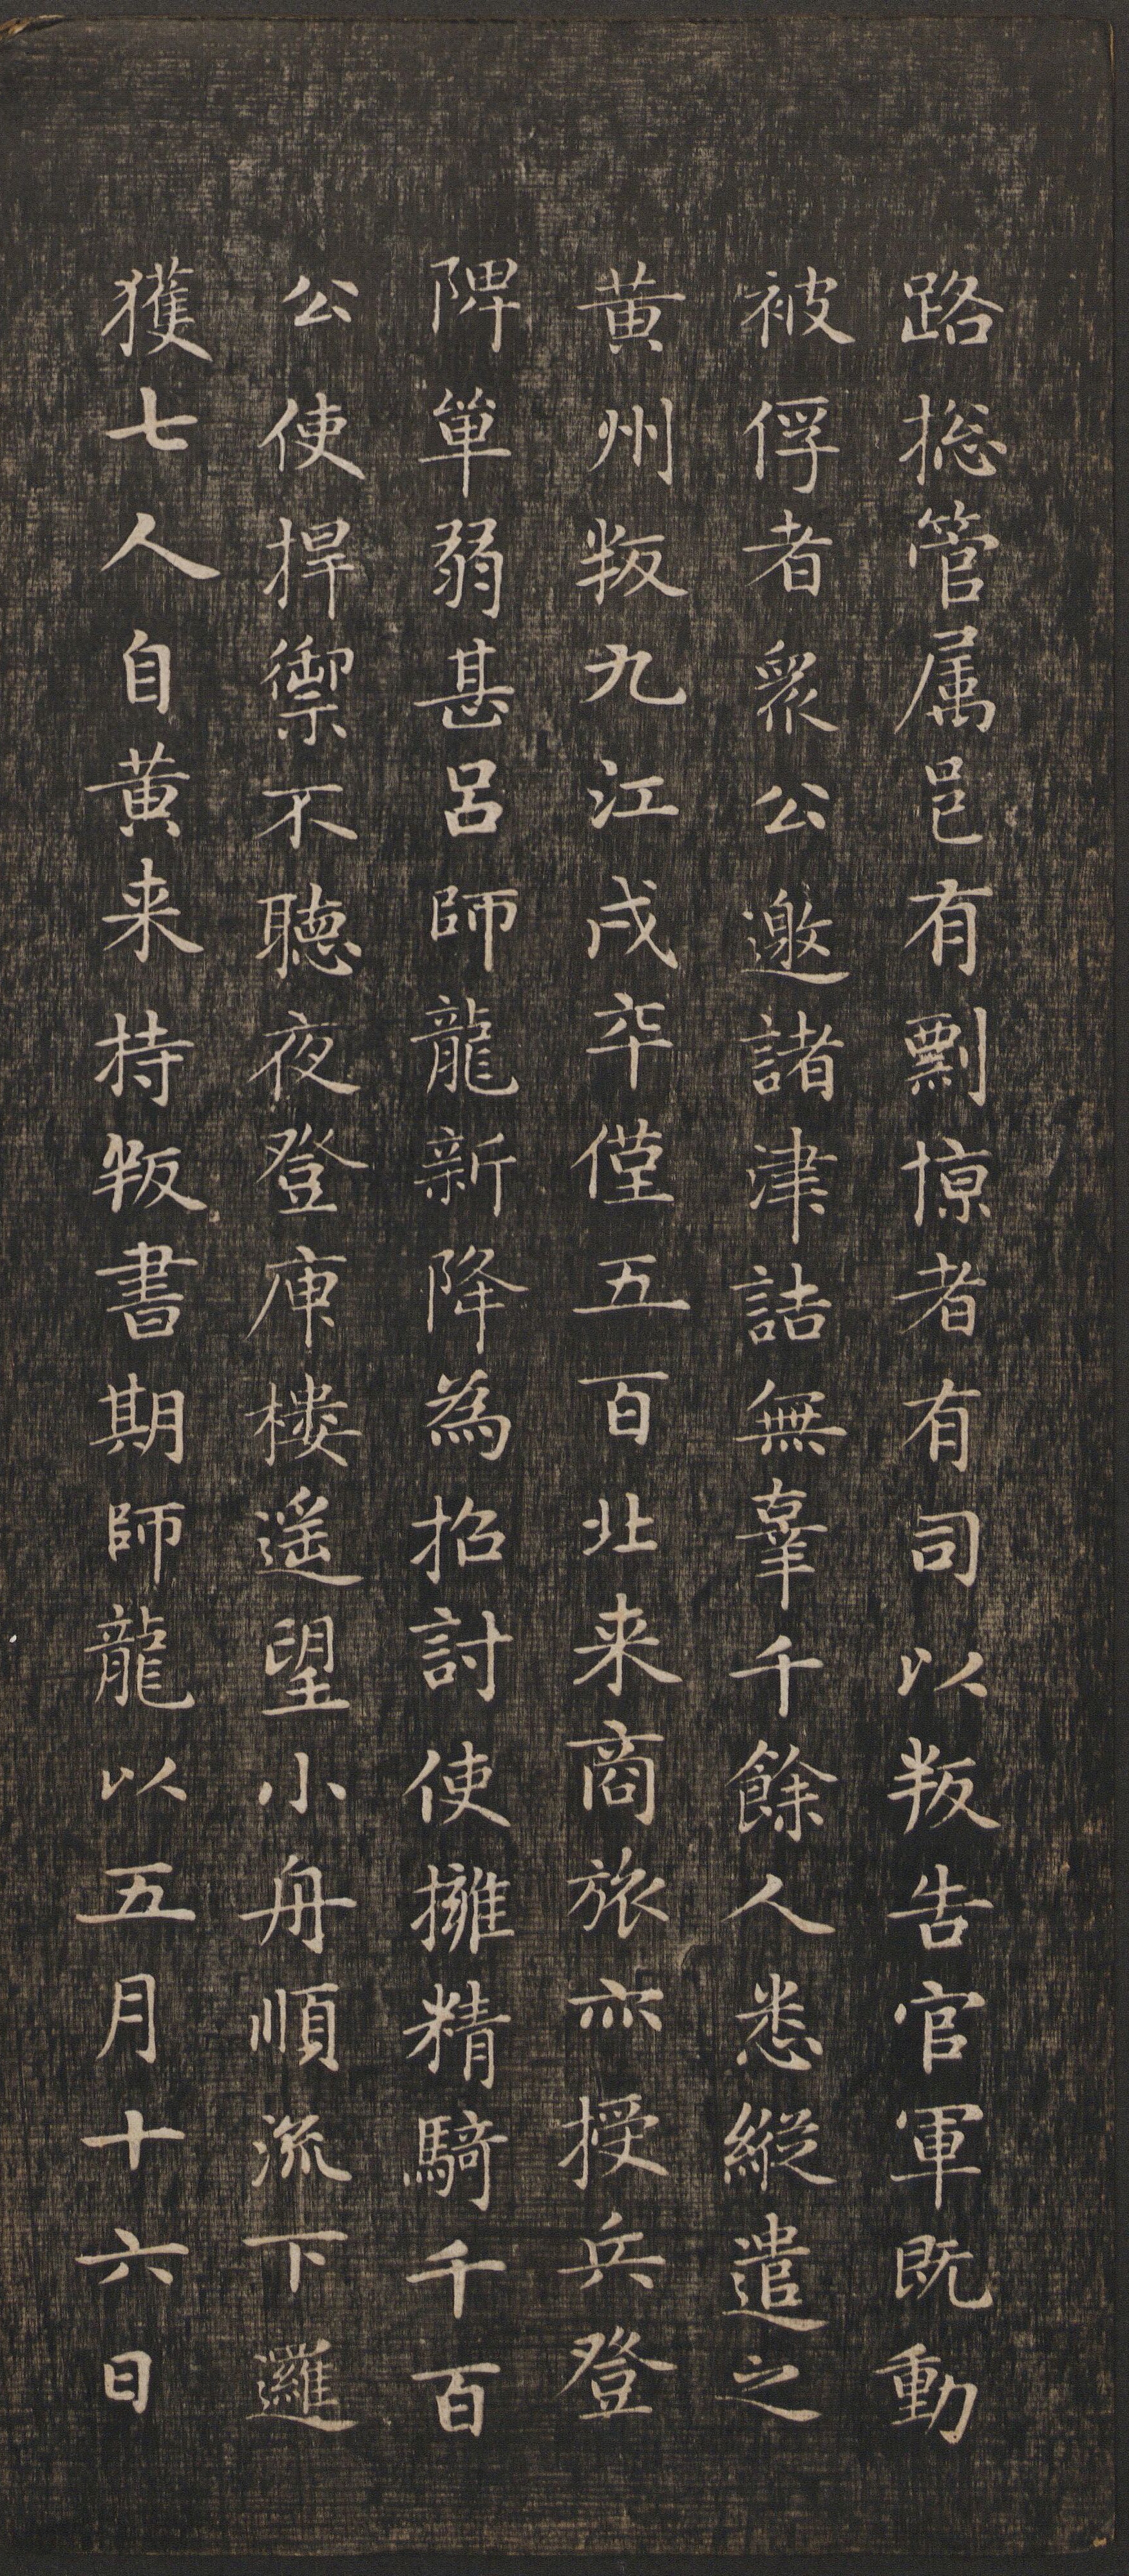 路揔管属邑有剽惊者有司以叛告官軍既動
被俘者眾公邀諸津詰無辜千餘人悉縱遣之
黄州叛九江戍卒僅五百北来商旅亦授兵登
陴單弱甚呂師龍新降為招討使擁精騎千百
公使捍禦不聽夜登庾樓遥望小舟順流下邏
獲七人自黄来持叛書期師龍以五月十六日